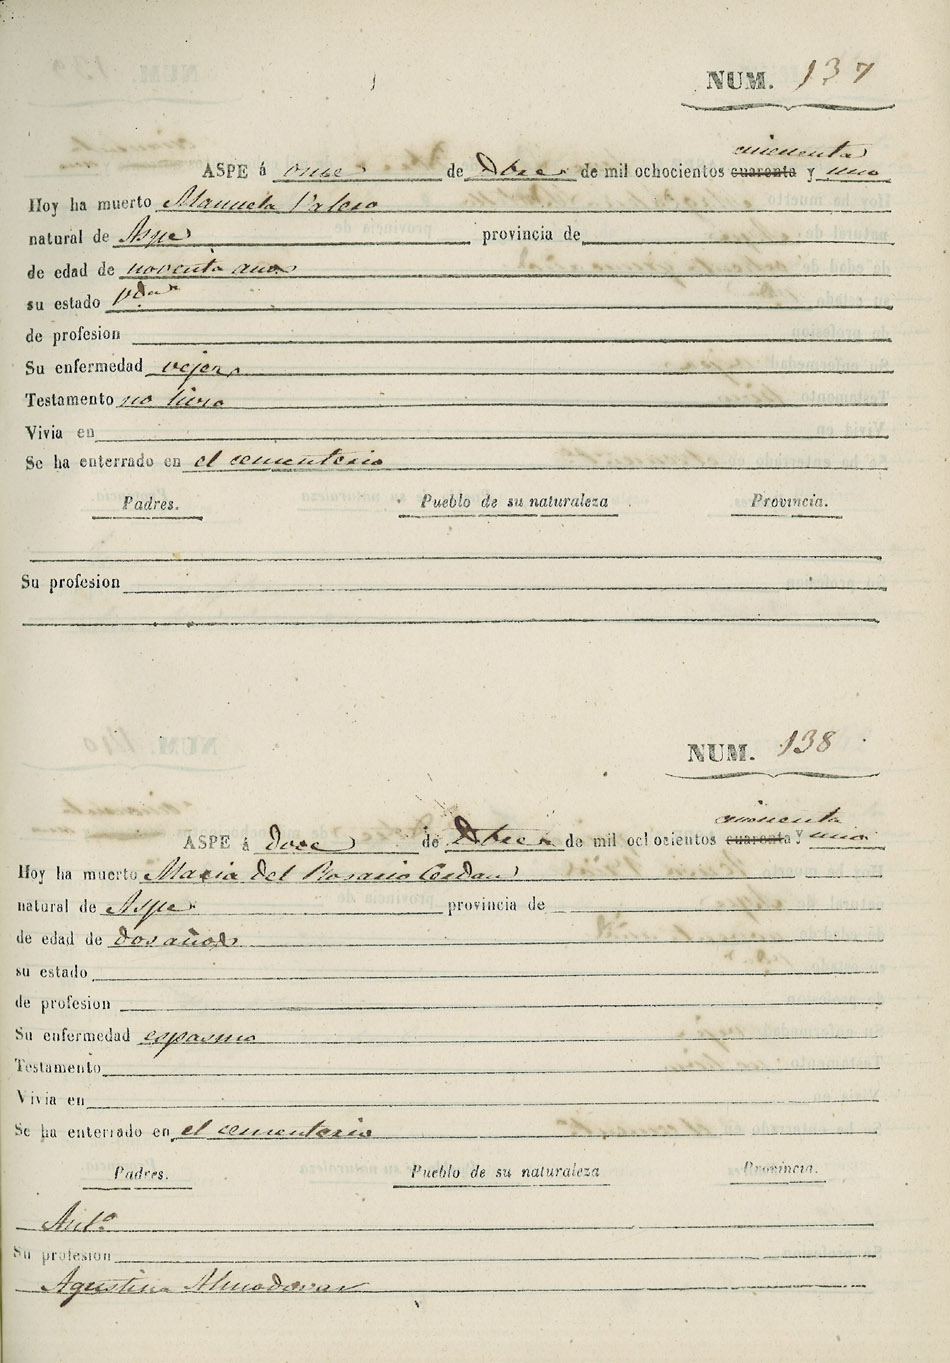 NUM. 137
cincuenta
ASPE á once de Dbre de mil ochocientos cuarenta y uno
Hoy ha muerto Manuela Valero
natural de Aspe provincia de
de edad de noventa años
su estado Vda
de profesion
Su enfermedad vejez
Testamento no hizo
Vivia en
Se ha enterrado en el cementerio
Padres. Pueblo de su naturaleza Provincia.
Su profesion
NUM. 138
cincuenta
ASPE á doce de Dbre de mil ochocientos cuarenta y uno
Hoy ha muerto Maria del Rosario Cerdan
natural de Aspe provincia de
de edad de dos años
su estado
de profesion
Su enfermedad espasmo
Testamento
Vivia en
Se ha enterrado en el cementerio
Padres. Pueblo de su naturaleza Provincia.
Anto
Su profesion
Agustina Almodovar